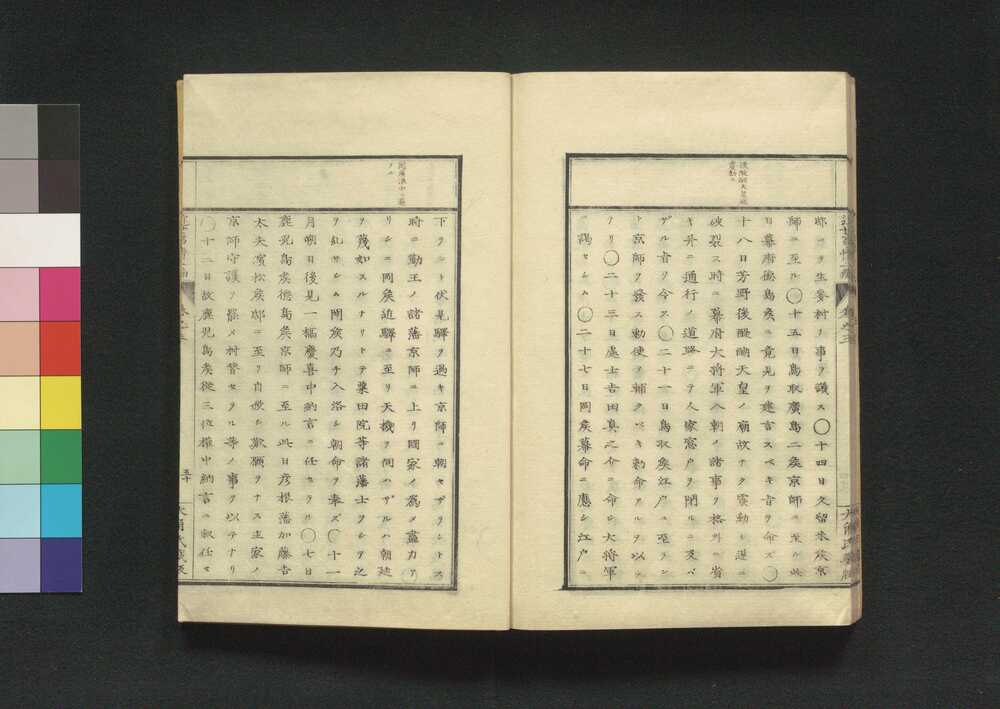 邸ニテ生麥村ノ事ヲ議ス〇十四日久留米矦京
師ニ至ル〇十五日鳥取廣島二矦京師ニ至ル此
日幕府德島矦ニ意見ヲ建言スベキ旨ヲ命ズ〇
十八日芳野後醍醐天皇ノ廟故ナク震動シ遂ニ
破裂ス時ニ幕府大將軍入朝ノ諸事ヲ格外ニ省
キ并ニ通行ノ道路ニテ人家窓戶ヲ閉ルニ及バ
ザル旨ヲ令ス〇二十一日鳥取矦江戶ニ至ラン
ト京師ヲ發ス勅使ヲ輔クベキ勅命ヲ
リ〇二十三日處士吉田真之介ニ命シ大將軍
ニ謁セシム〇二十七日岡矦幕命ニ應シ江戶ニ
下ラント伏見驛ヲ過キ京師ニ朝セザラントス
時ニ勤王ノ諸藩京師ニ上リ國家ノ為メ盡力ア
リシニ岡矦近驛ニ至リ天機ヲ伺ハザルハ朝廷
ヲ蔑如スルナリトテ粟田院等諸藩士ヲシテ之
ヲ糺サシム岡矦乃チ入洛シ朝命ヲ奉ズ〇十一
月朔日後見一橋慶喜中納言ニ任セラル〇七日
鹿児島矦德島矦京師ニ至ル此日彥根藩加藤吉
太夫濱松矦邸ニ至リ自殺シ歎願ヲナス主家ノ
京師守護ヲ罷メ村替セラル等ノ事ヲ以テナリ
〇十二日故鹿児島矦從三位權中納言ニ叙任セ
五十